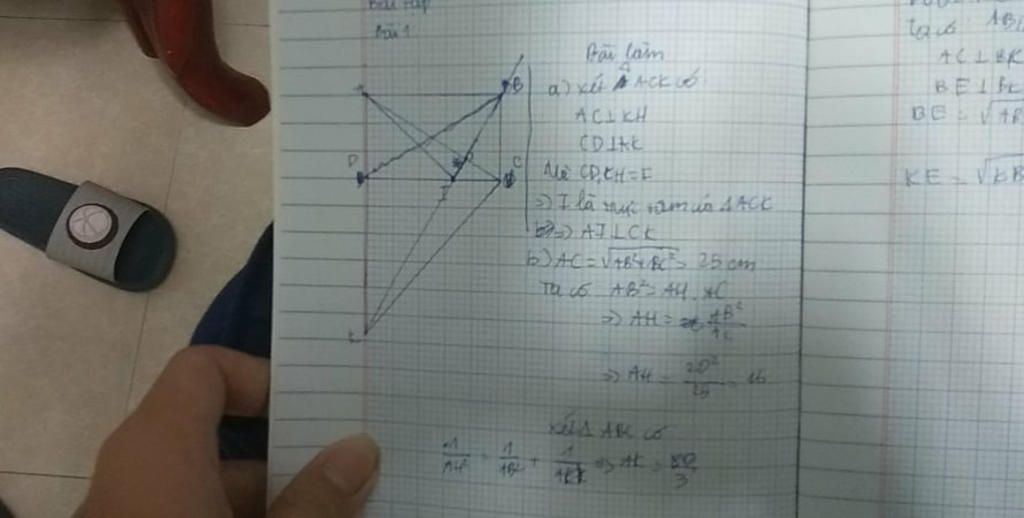 Bài tập
Bài 1
Bài làm
a) xét Δ ACK có
AC⊥KH
CD⊥AK
Mà CD,KH=I
=> I là trực tâm của ΔACK
=> AI⊥CK
b) AC=√AB²+BC² = 25 cm
Ta có AB²=AH.AC
=> AH = AB²/AC
=> AH = 20²/25 = 16
xét Δ ABK có
1/AH² = 1/AB² + 1/AK² => AK = 80/3
A
B
D
C
I
K
Ta có
AC⊥BK
BE =
KE = √KB